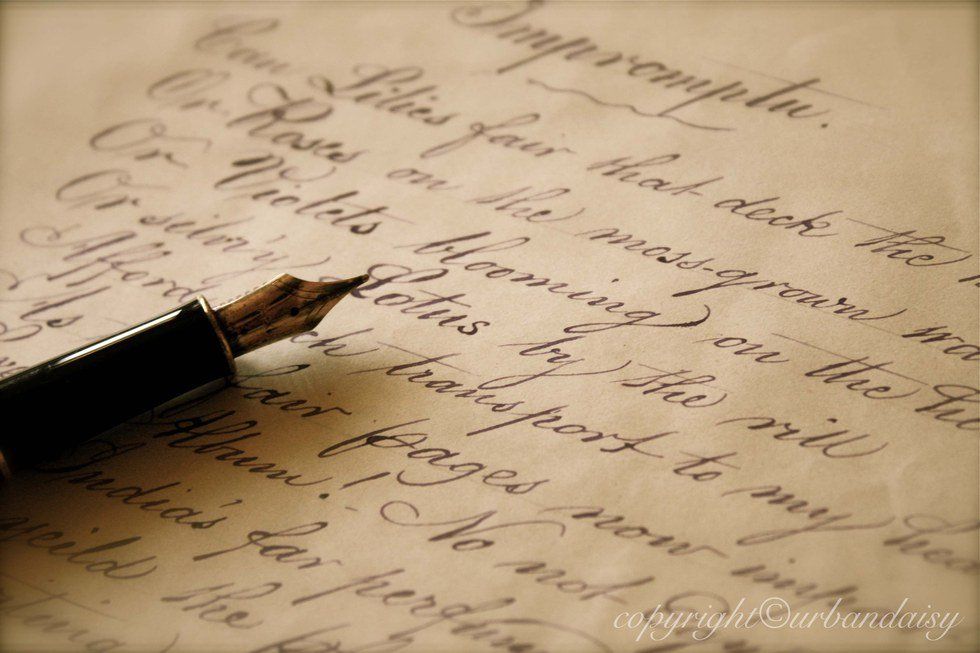 Impromptu.
Can Lilies fair that deck the
Or Roses on the moss-grown
Or Violets blooming on the
Or silv'ry Lotus by the rill
Afford ch transport to my hea
As fair pages now imp
Album! No not
India's far
yeild the
copyright©urbandaisy